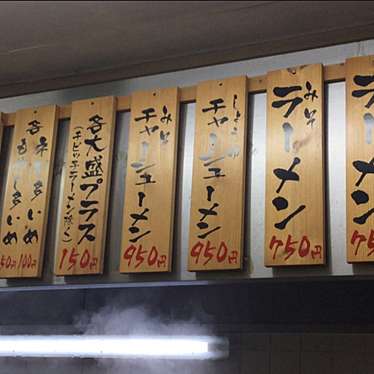 ラーメン
750円
みそ
ラーメン
750円
しょうゆ
チャーシューメン
950円
みそ
チャーシューメン
950円
各大盛プラス
(チビッ子ラーメン除く)
150円
各ネギ多いめ
各もやし多いめ
50円 100円